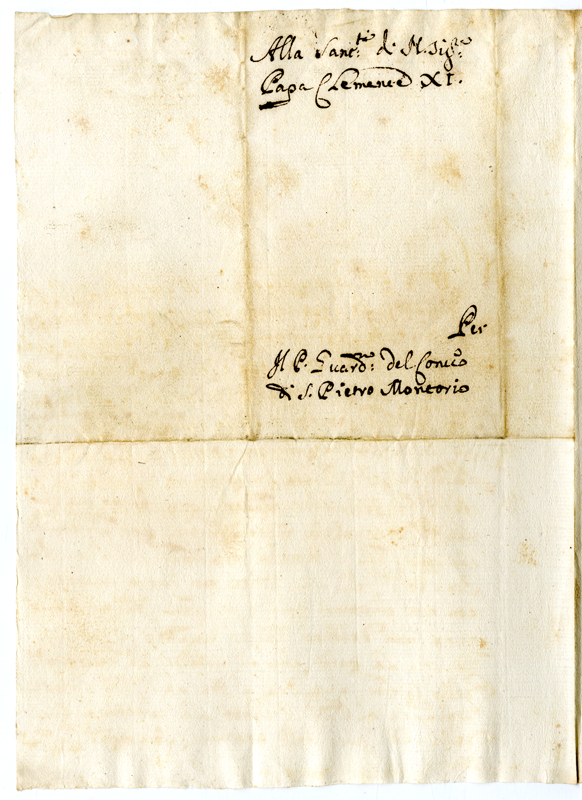 Alla Sanc.tà di N. Sig.re
Papa Clemente XI.
Per
Il P. Guard.no del Conv.to
di S. Pietro Montorio